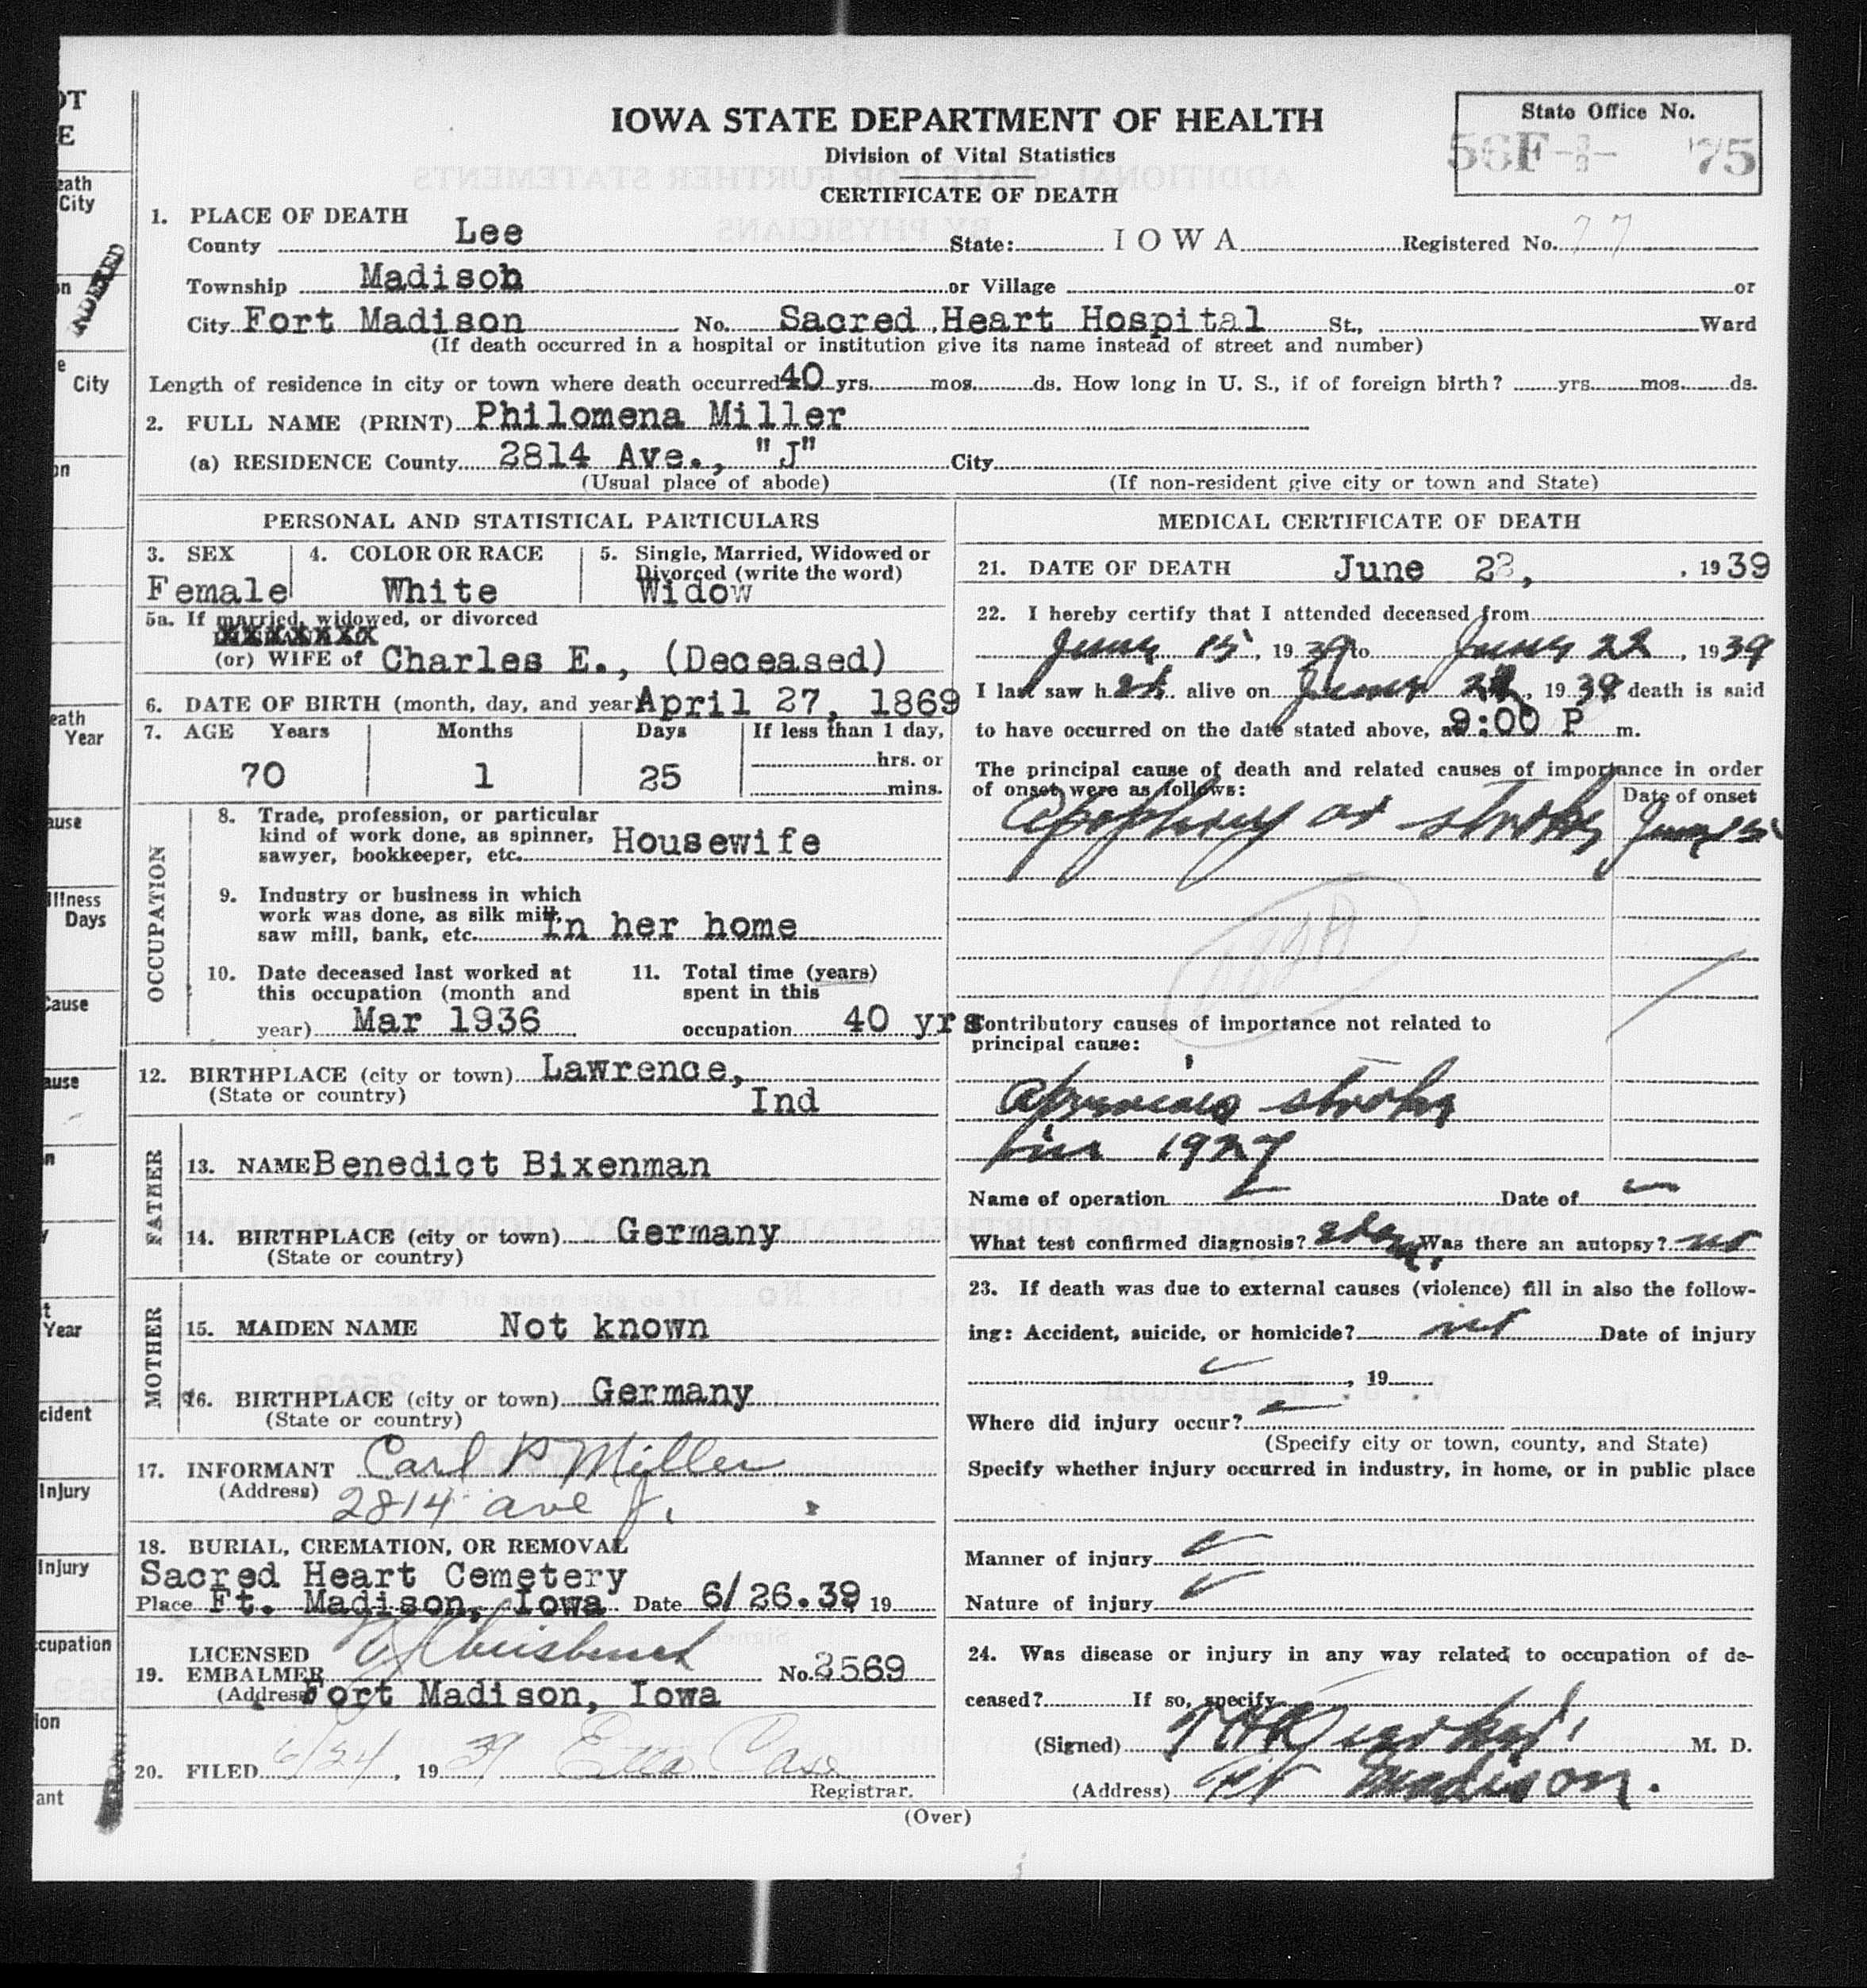 OT
E
eath
City
on
e
City
on
eath
Year
ause
Illness
Days
Cause
ause
n
y
t
Year
cident
Injury
Injury
ccupation
ion
ant
IOWA STATE DEPARTMENT OF HEALTH
Division of Vital Statistics
CERTIFICATE OF DEATH
State Office No.
56F- 75
1. PLACE OF DEATH
County Lee State: IOWA Registered No. 77
Township Madison or Village or
City Fort Madison No. Sacred Heart Hospital St., Ward
(If death occurred in a hospital or institution give its name instead of street and number)
Length of residence in city or town where death occurred 40 yrs. mos. ds. How long in U. S., if of foreign birth? yrs. mos. ds.
2. FULL NAME (PRINT) Philomena Miller
(a) RESIDENCE County 2814 Ave., "J" City
(Usual place of abode) (If non-resident give city or town and State)
PERSONAL AND STATISTICAL PARTICULARS
3. SEX 4. COLOR OR RACE 5. Single, Married, Widowed or
Divorced (write the word)
Female White Widow
5a. If married, widowed, or divorced
(or) WIFE of Charles E., (Deceased)
6. DATE OF BIRTH (month, day, and year) April 27, 1869
7. AGE Years Months Days If less than 1 day,
hrs. or
70 1 25
mins.
OCCUPATION
8. Trade, profession, or particular
kind of work done, as spinner, Housewife
sawyer, bookkeeper, etc.
9. Industry or business in which
work was done, as silk mill, In her home
saw mill, bank, etc.
10. Date deceased last worked at 11. Total time (years)
this occupation (month and spent in this
year) Mar 1936 occupation 40 yrs
12. BIRTHPLACE (city or town) Lawrence,
(State or country) Ind
FATHER
13. NAME Benedict Bixenman
14. BIRTHPLACE (city or town) Germany
(State or country)
MOTHER
15. MAIDEN NAME Not known
16. BIRTHPLACE (city or town) Germany
(State or country)
17. INFORMANT Carl P Miller
(Address) 2814 ave J.
18. BURIAL, CREMATION, OR REMOVAL
Sacred Heart Cemetery
Place Ft. Madison, Iowa Date 6/26.39 19
LICENSED
19. EMBALMER No. 2569
(Address) Fort Madison, Iowa
20. FILED 6/24, 19 39 Etta Case
Registrar.
MEDICAL CERTIFICATE OF DEATH
21. DATE OF DEATH June 22, , 1939
22. I hereby certify that I attended deceased from
June 15, 1939 to June 22, 1939
I last saw her alive on June 22, 1939 death is said
to have occurred on the date stated above, at 9:00 P m.
The principal cause of death and related causes of importance in order
of onset were as follows: Date of onset
Apoplexy or stroke June 15
Contributory causes of importance not related to
principal cause:
A previous stroke
in 1927
Name of operation Date of
What test confirmed diagnosis? Was there an autopsy? no
23. If death was due to external causes (violence) fill in also the follow-
ing: Accident, suicide, or homicide? no Date of injury
, 19
Where did injury occur?
(Specify city or town, county, and State)
Specify whether injury occurred in industry, in home, or in public place
Manner of injury
Nature of injury
24. Was disease or injury in any way related to occupation of de-
ceased? If so, specify
(Signed) M. D.
(Address) Ft Madison.
(Over)